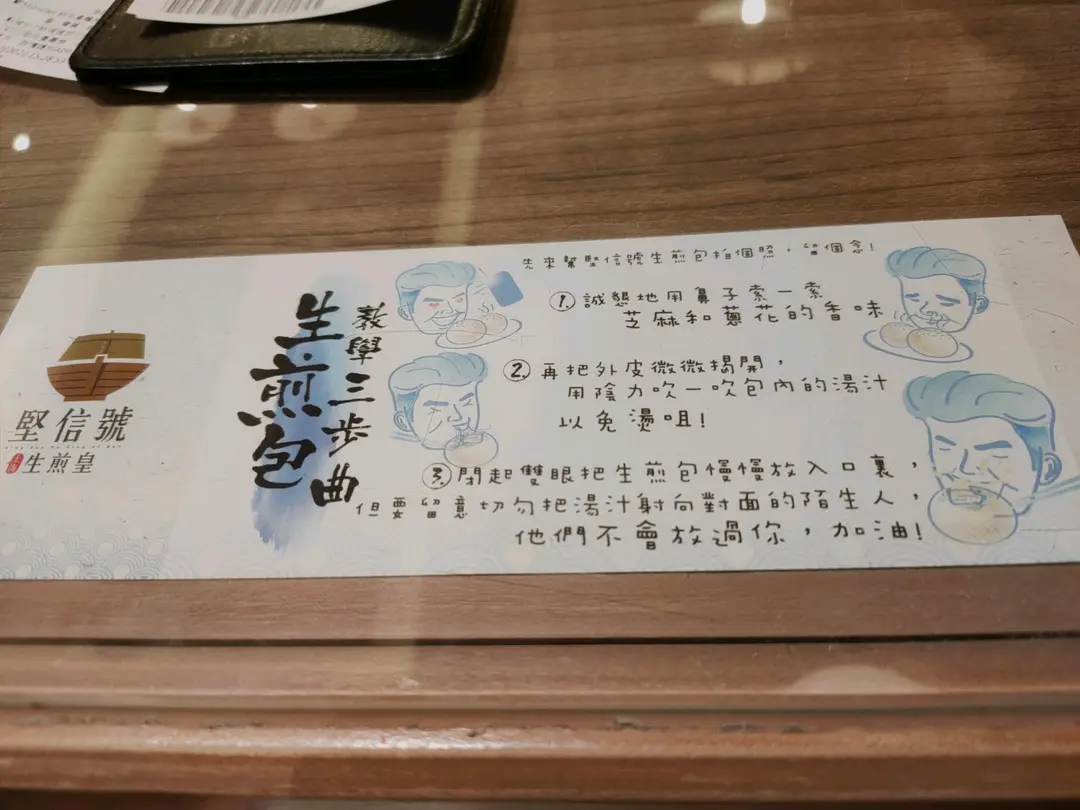 堅信號
上海
生煎皇
生煎包
教學三步曲
先來幫堅信號生煎包拍個照，留個念！
1. 誠懇地用鼻子索一索
芝麻和蔥花的香味
2. 再把外皮微微揭開，
用陰力吹一吹包內的湯汁
以免燙咀！
3. 閉起雙眼把生煎包慢慢放入口裏，
但要留意切勿把湯汁射向對面的陌生人，
他們不會放過你，加油！